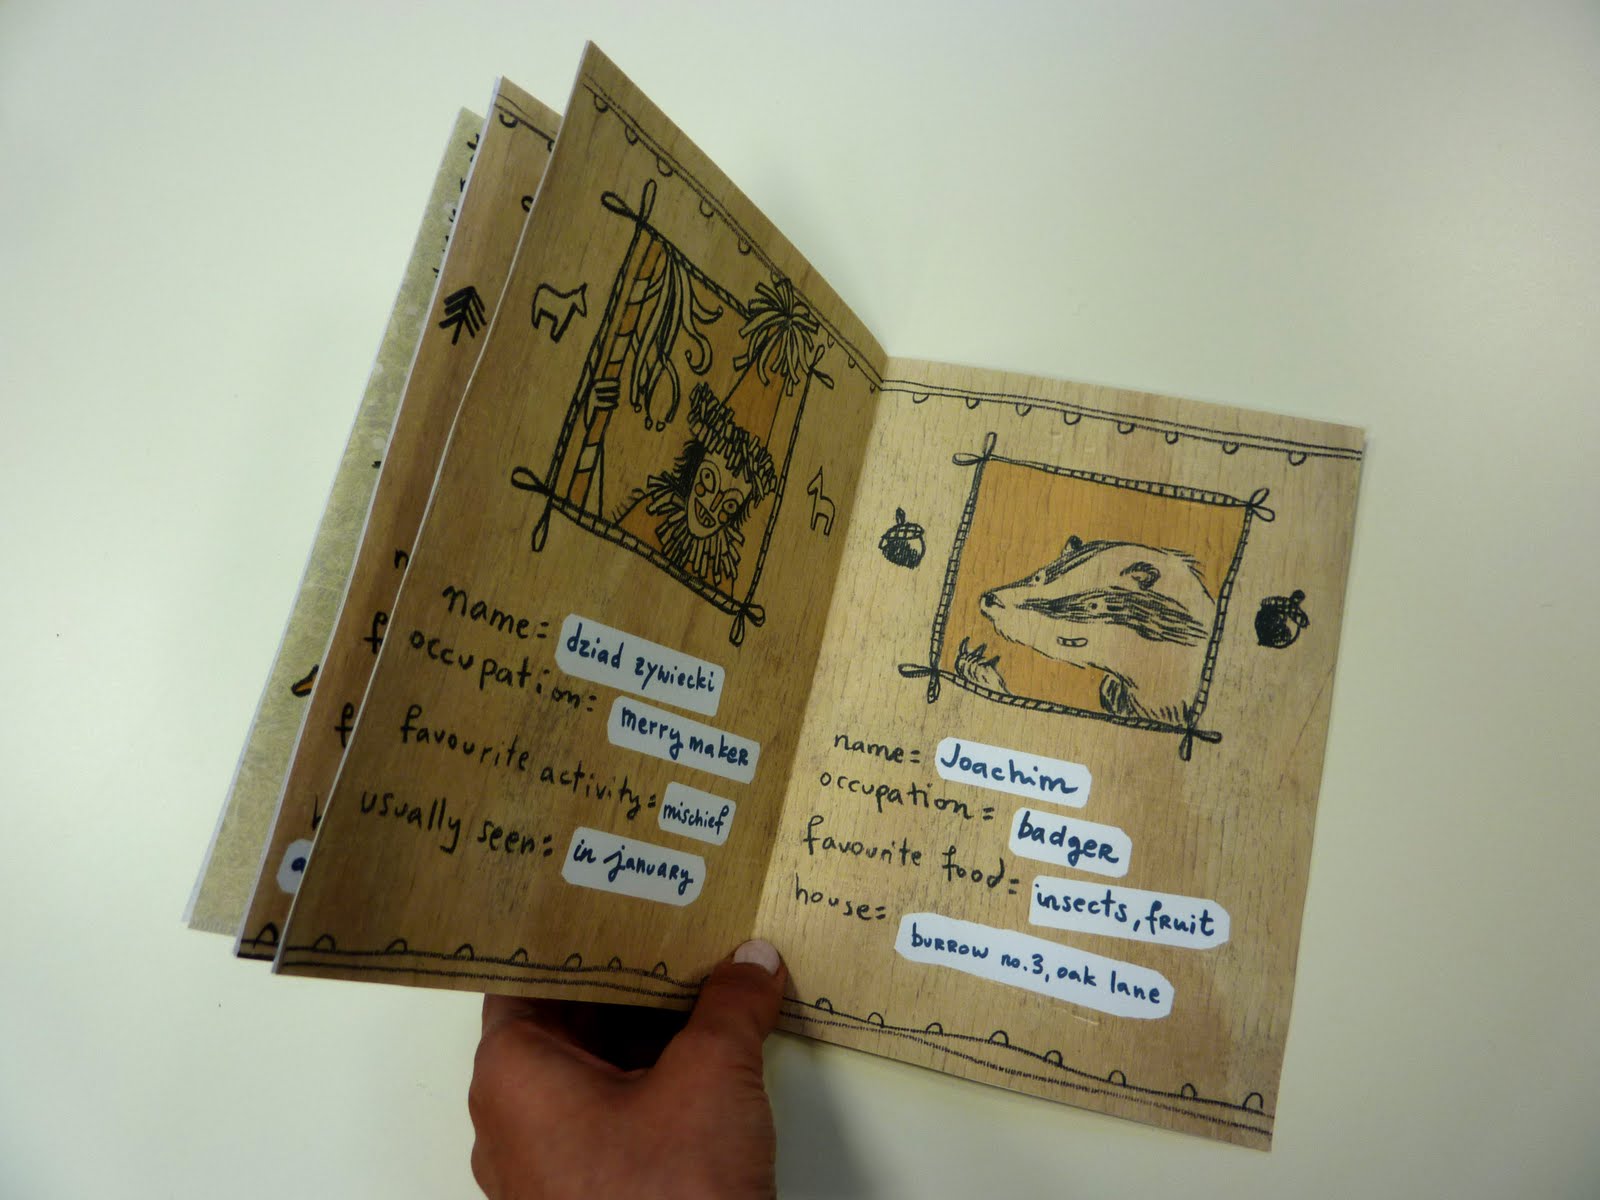 name= dziad zywiecki
occupation= merry maker
favourite activity= mischief
usually seen= in january
name= Joachim
occupation= badger
favourite food= insects, fruit
house= burrow no.3, oak lane